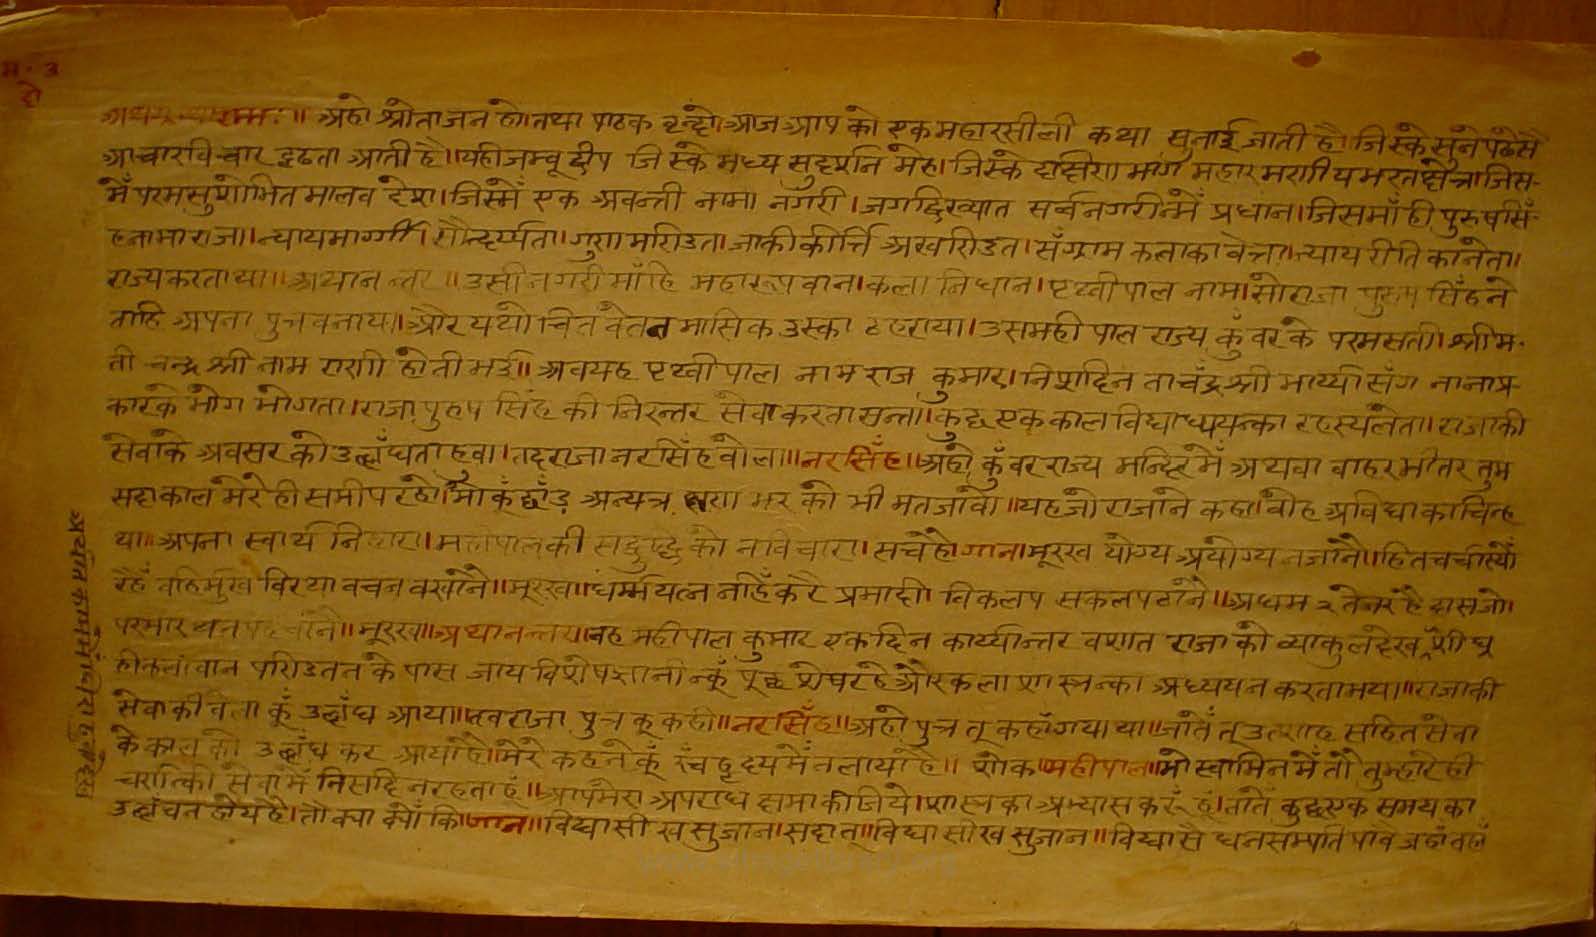 म॰ ३
अहो श्रोताजन हो। तथा पाठक वृन्दो। आज आप को एक महारसीली कथा सुनाई जाती है। जिस्के सुंने पढेसै
आचारविचार दृढता आती है॥ यही जम्बूद्वीप जिस्के मध्य सुदर्शन मेरु। जिस्के दक्षिण भाग महारमणीय भरतक्षेत्र। जिस-
मेँ परमसुशोभित मालव देश। जिस्मेँ एक अवन्ती नामा नगरी। जगद्विख्यात सर्वनगरीन्मेँ प्रधान। जिसमाँही पुरुषसिँ-
हनामा राजा। न्यायमार्गी। सौन्दर्य्यता। गुणमण्डित। जाकी कीर्त्ति अखण्डित। सँग्राम कलाका वेत्ता। न्याय रीति का नेता॥
राज्यकरता था॥ अथानन्तर॥ उसी नगरी माँहि महारूपवान। कला निधान। पृथ्वीपाल नाम। सो राजा पुरुष सिंहने
ताहि अपना पुत्र बनाया। और यथोचित वेतन मासिक उस्का ठहराया। उस महीपाल राज्य कुंवर के परमसती। श्रीम-
ती चन्द्र श्री नाम राणी होती भई॥ अब यह पृथ्वीपाल नाम राज कुमार। निशदिन ता चंद्रश्री भार्य्या सँग नानाप्र-
कारके भोग भोगता। राजा पुरुष सिंह की निरन्तर सेवा करता सन्ता। कुछ एक काल विद्याध्ययन्का रहस्य लेता। राजाकी
सेवाके अवसर को उल्लँघता हुवा। तद राजा नरसिँह बोला॥ नरसिँह॥ अहो कुँवर राज्य मन्दिरमेँ अथवा बाहर भीतर तुम
सदाकाल मेरे ही समीप रहो। मोकूं छाँड़ अन्यत्र क्षण भर को भी मत जावो॥ यह जो राजाने कहा। वोह अविद्या का चिन्ह
था॥ अपना स्वार्थ निहारा। महीपालकी सद्बुद्धि को न विचारा। सच है। गान। मूरख योग्य अयोग्य न जाने॥ हित चर्चास्योँ
रहैं बहिर्मुख विरथा वचन बखाने॥ मूरख॥ धर्म्मयत्न नहिँ करै प्रमादी। विकलप सकल पठाने॥ अधम र ते नर है दास जो।
परमारथ न पहचाने॥ मूरख॥ अथानन्तर॥ वह महीपाल कुमार एक दिन कार्य्यान्तर वशात राजा को व्याकुल देख। शीघ्र
ही कलावान पण्डितन के पास जाय विशेष ज्ञानीन्कूँ पूछ और कला शास्त्रन्का अध्ययन करता भया॥ राजाकी
सेवा की वेला कूँ उल्लँघ आया॥ तब राजा पुत्र कू कही॥ नरसिँह॥ अहो पुत्र तू कहाँ गया था॥ जातैँ तू उत्साह सहित सेवा
के काल को उल्लँघ कर आया है। मेरे कहने कूँ रंच हृदय मेँ न लाया है॥ महीपाल॥ भो स्वामिन मेँ तौ तुम्हारे ही
चरणोंकी सेवामेँ निसदिन रहता हूं॥ आप मेरा अपराध क्षमा कीजिये। शास्त्रका अभ्यास करूं हूं। तातैं कुछ एक समय का
उल्लंघन होय है। तौ क्या क्योँ कि। गान॥ विद्या सीख सुजान। सदा तू॥ विद्या सीख सुजान॥ विद्यासै धनसम्पति पावै जहां तहां
अर्थात काममें दूसरा ठकै देख